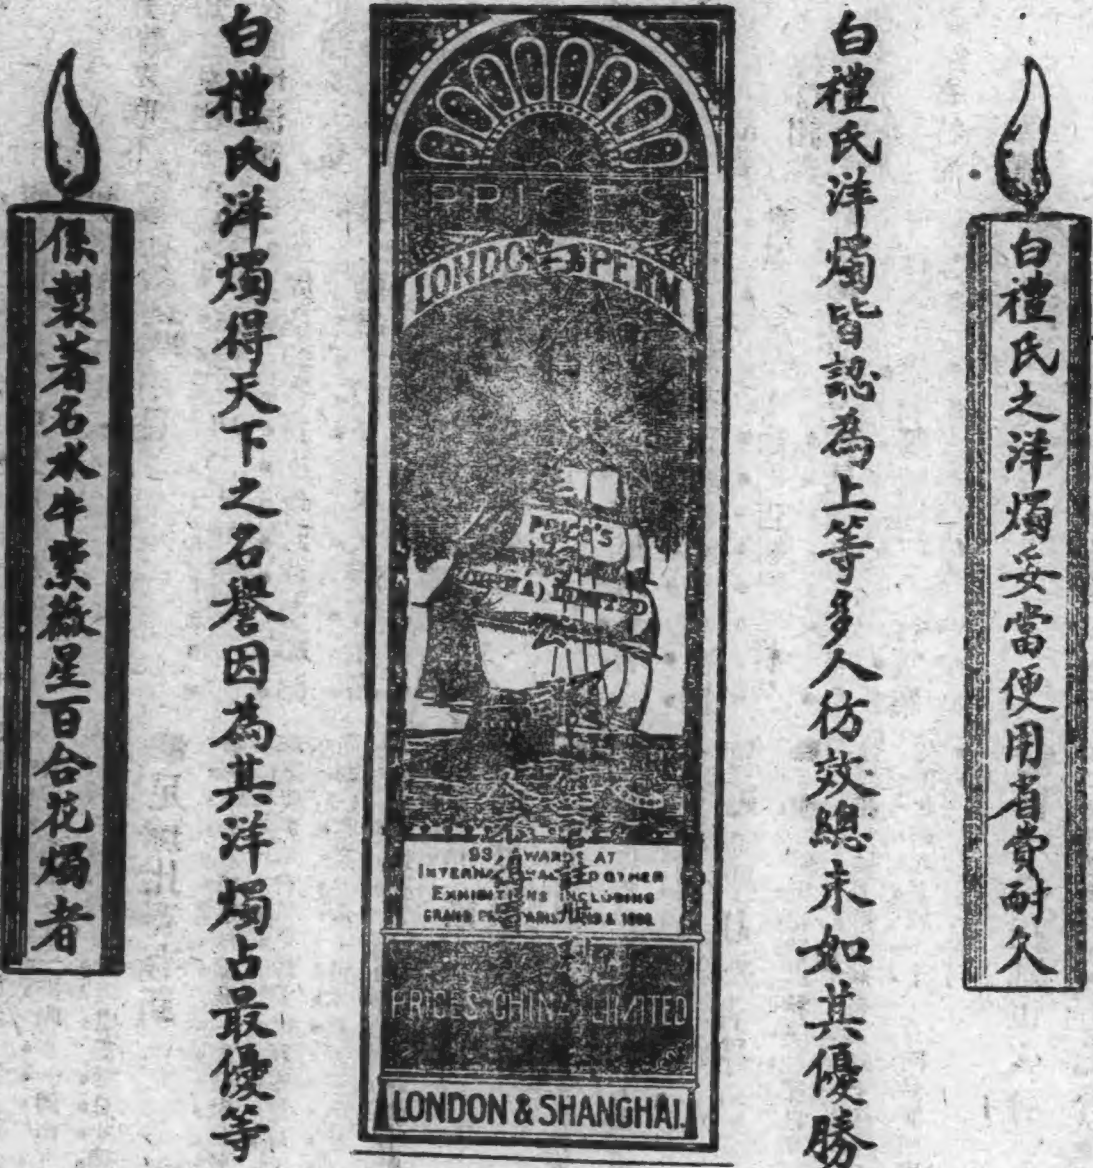 白禮氏之洋燭妥當便用省費耐久
白禮氏洋燭皆認為上等多人仿效總未如其優勝
PRICES
LONDON SPERM
PRICE'S
LIMITED
93 AWARDS AT
INTERNATIONAL AND OTHER
EXHIBITIONS INCLUDING
GRAND PRIX PARIS
PRICES CHINA LIMITED
LONDON & SHANGHAI.
白禮氏洋燭得天下之名譽因為其洋燭占最優等
係製著名水牛紫薇星百合花燭者